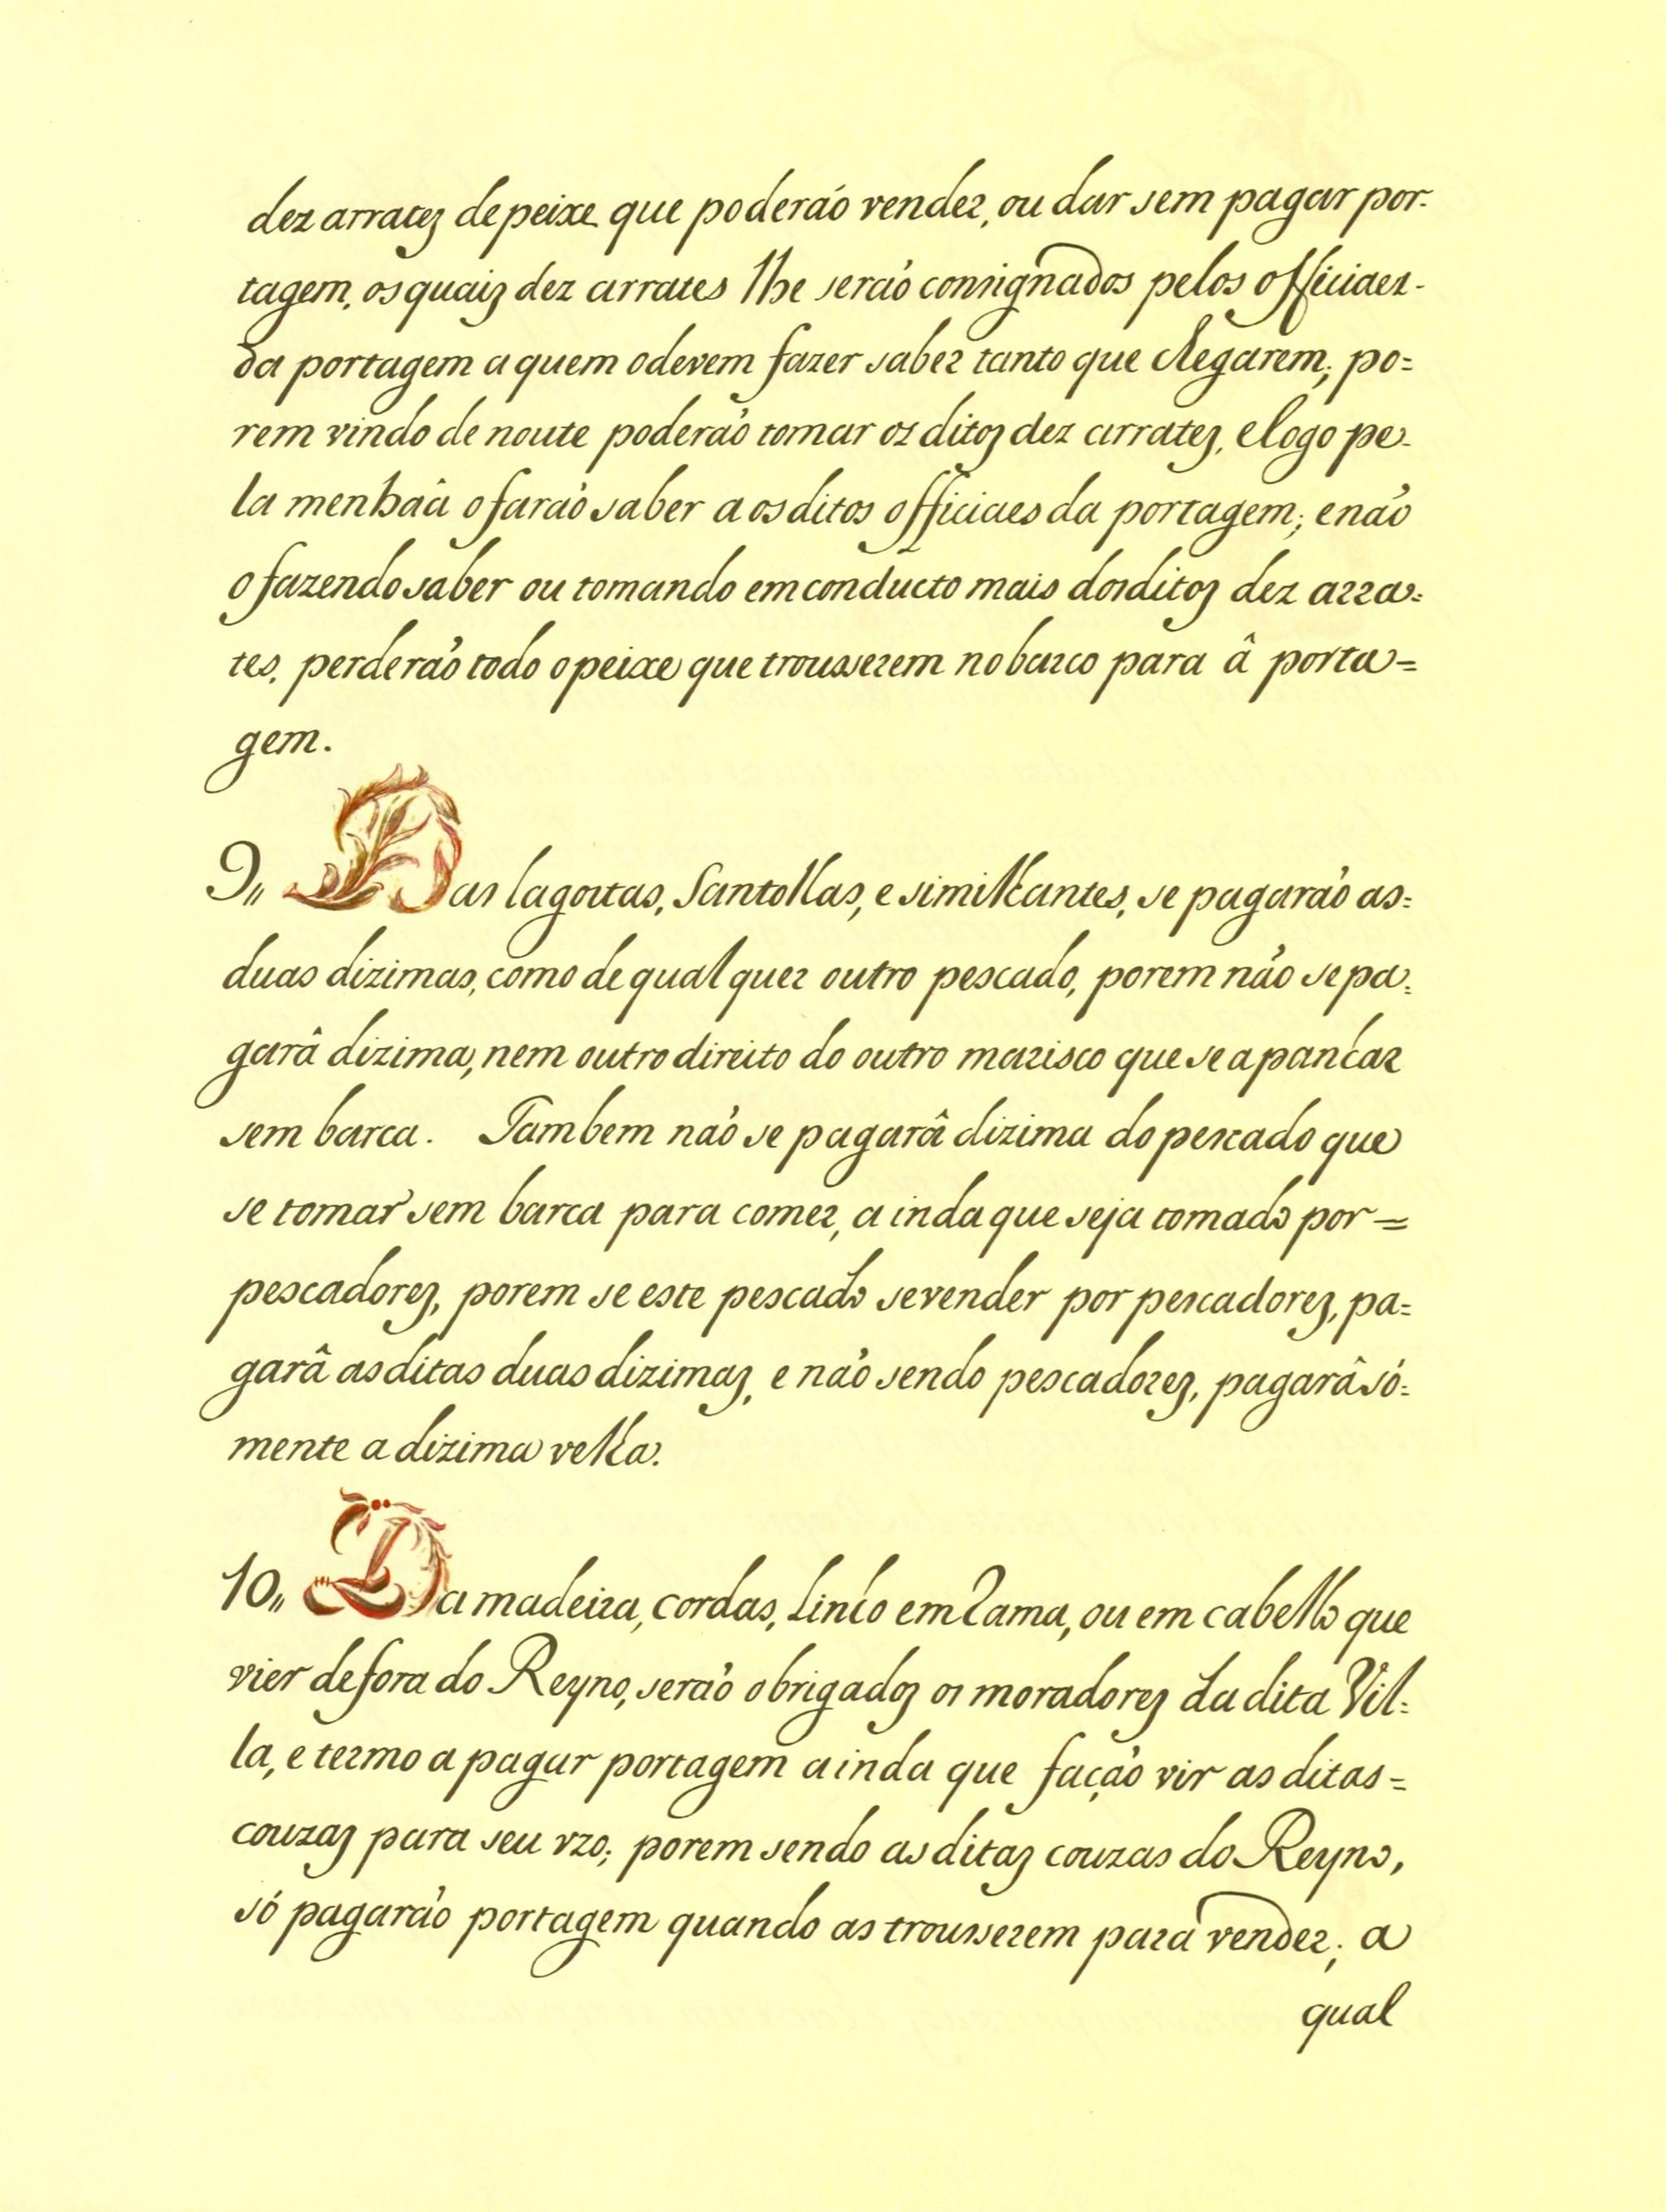 dez arratez de peixe que poderáo vender, ou dar sem pagar por-
tagem, os quaiz dez arrates lhe seráo consignados pelos officiaes-
da portagem a quem o devem fazer saber tanto que chegarem; po=
rem vindo de noute poderáo tomar os ditoz dez arratez, e logo pe-
la menhaã o faráo saber aos ditos officiaes da portagem; e náo
o fazendo saber ou tomando em conducto mais dos ditoz dez arra=
tes, perderáo todo o peixe que trousserem no barco para â porta=
gem.
9,, Das lagostas, Santolhas, e similhantes, se pagaráo as=
duas dizimas, como de qualquer outro pescado, porem náo se pa=
garâ dizima, nem outro direito do outro marisco que se apanhar
sem barca. Tambem náo se pagarâ dizima do pescado que
se tomar sem barca para comer, ainda que seja tomado por=
pescadorez, porem se este pescado se vender por pescadorez, pa=
garâ as ditas duas dizimaz, e náo sendo pescadorez, pagarâ só=
mente a dizima velha.
10,, Da madeira, cordas, Linho em rama, ou em cabello que
vier de fora do Reyno, seráo obrigadoz os moradorez da dita Vil=
la, e termo a pagar portagem ainda que façáo vir as ditas=
couzaz para seu vzo; porem sendo as ditaz couzas do Reyno,
só pagaráo portagem quando as trousserem para vender; a
qual